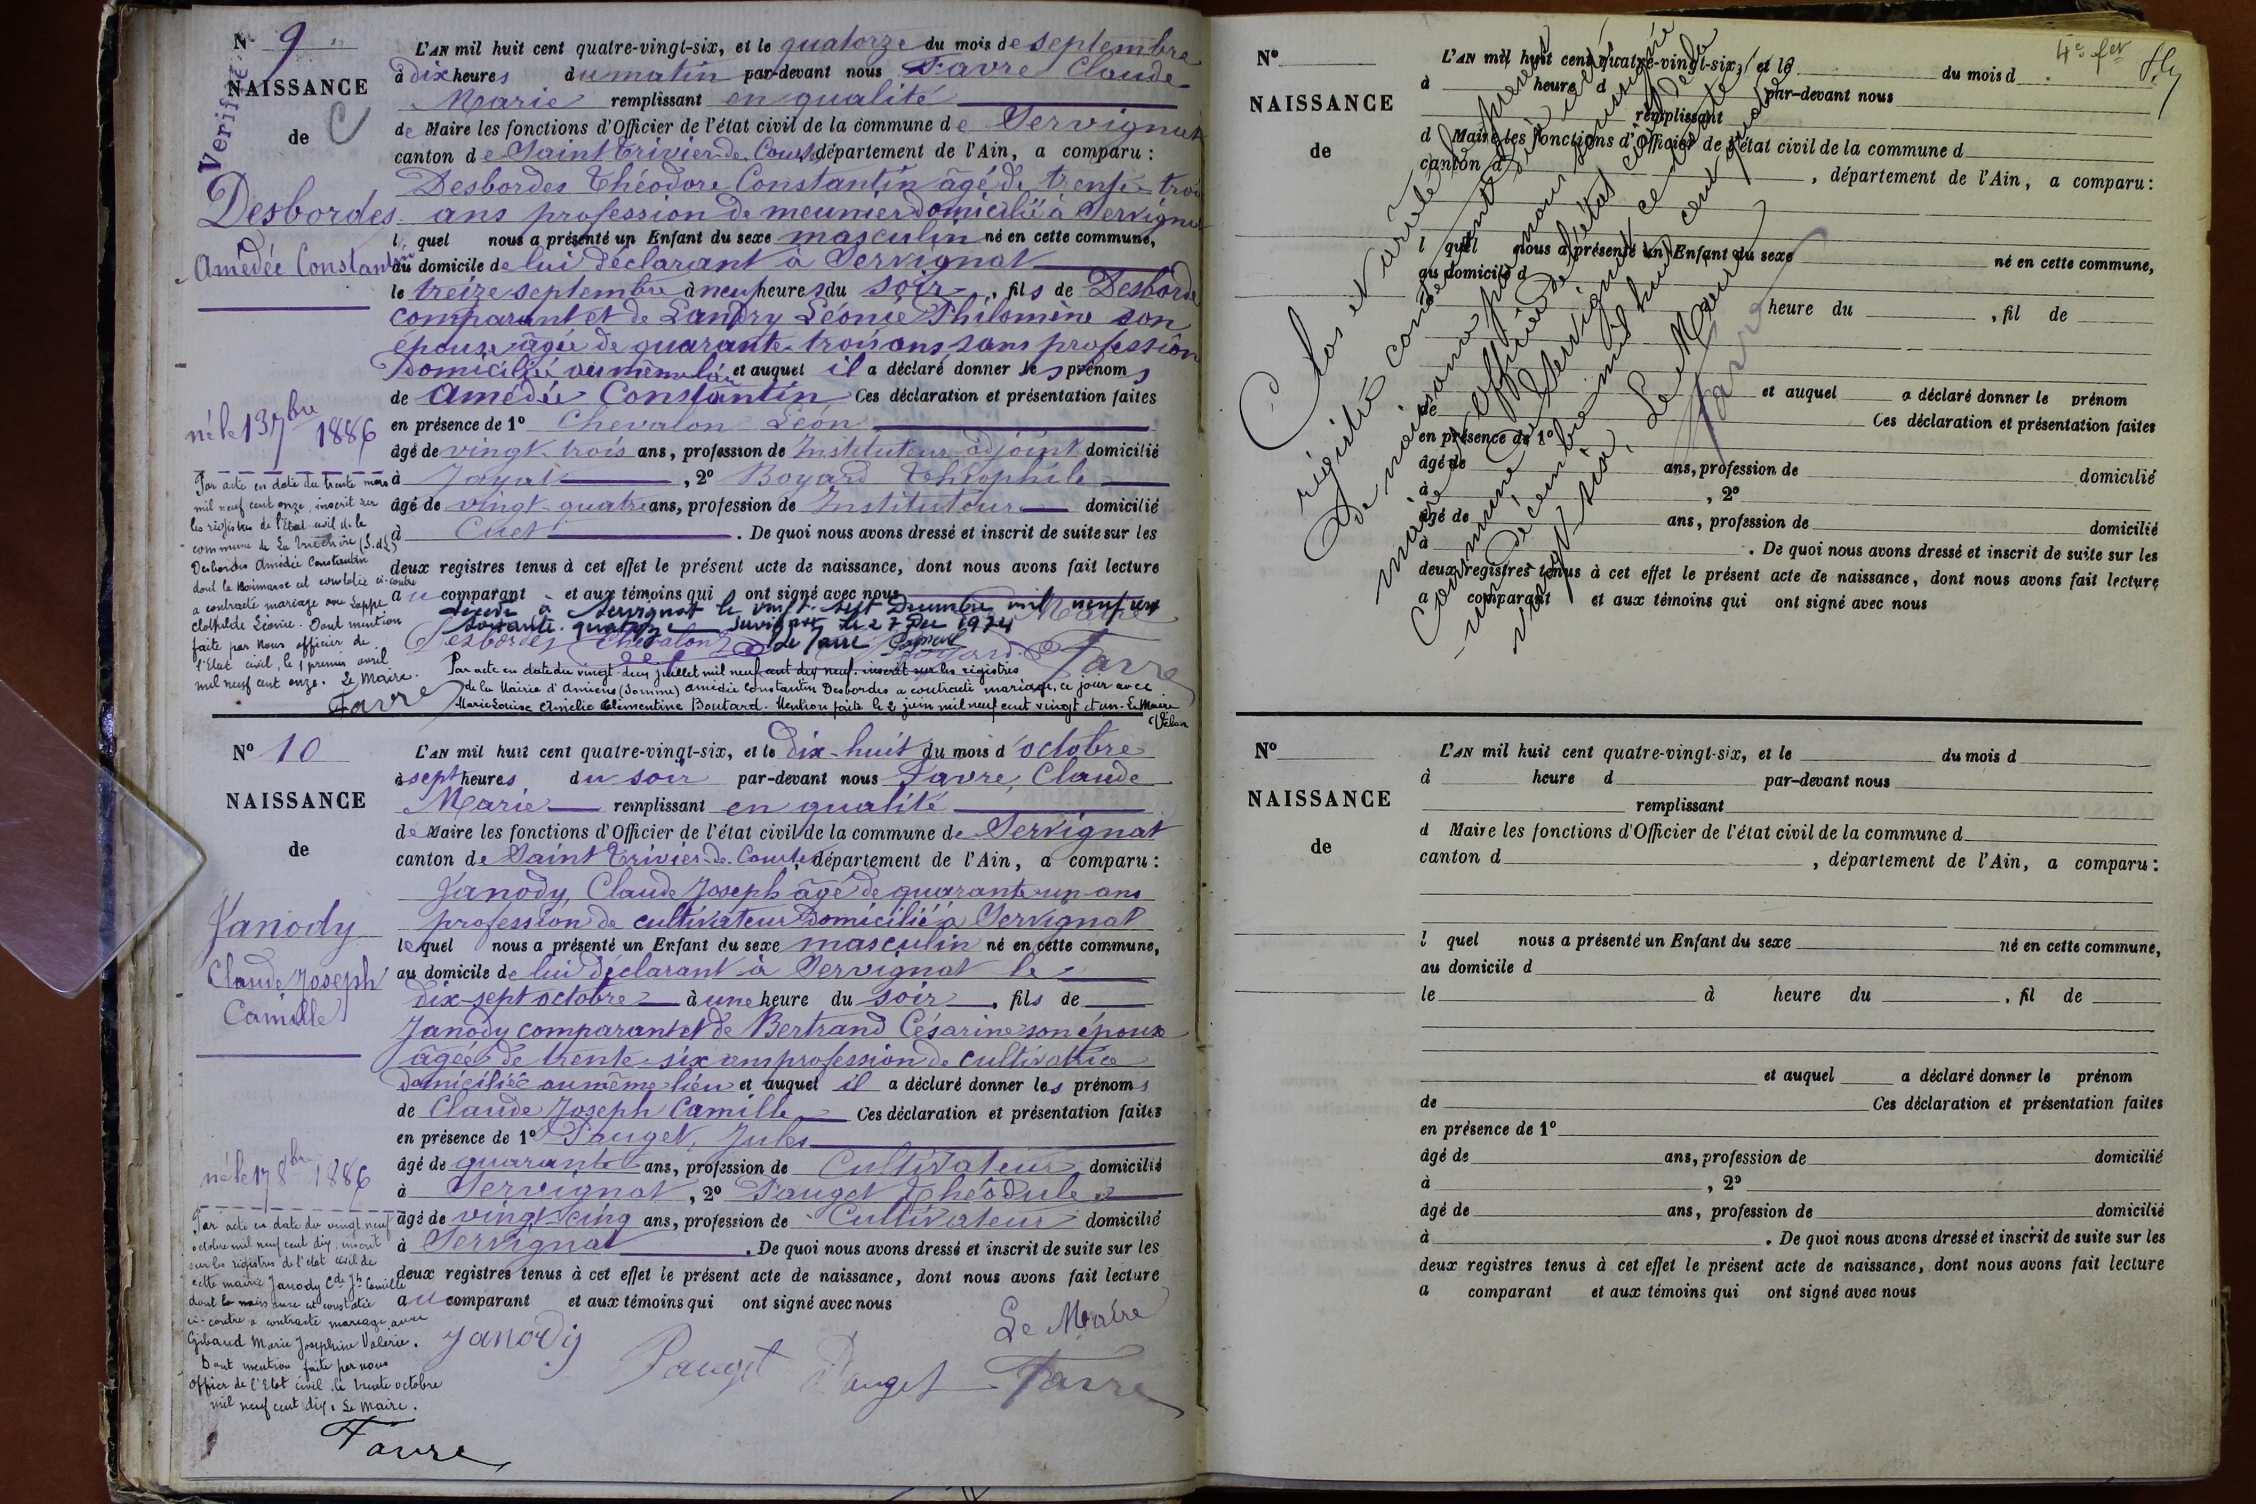 N° 9
Verifié
NAISSANCE
de
Desbordes
Amédée Constantin
né le 13 7bre 1886
Par acte en date du trente mars
mil neuf cent onze, inscrit sur
les registres de l'Etat-civil de la
commune de La Truchère (S.&L.)
Desbordes Amédée Constantin
dont la naissance est constatée ci-contre
a contracté mariage avec Lappe
Clothilde Léonie. Dont mention
faite par Nous officier de
l'Etat civil, le 1 premier avril
mil neuf cent onze. Le Maire.
Favre
L'AN mil huit cent quatre-vingt-six, et le quatorze du mois de septembre
à dix heures du matin par-devant nous Favre Claude
Marie remplissant en qualité
de Maire les fonctions d'Officier de l'état civil de la commune de Servignat
canton de Saint Trivier-de-Courtes département de l'Ain, a comparu :
Desbordes Théodore Constantin âgé de trente-trois
ans profession de meunier domicilié à Servignat
lequel nous a présenté un Enfant du sexe masculin né en cette commune,
au domicile de lui déclarant à Servignat
le treize septembre à neuf heures du soir, fils de Desbordes
comparant et de Landry Léonie Philomène son
épouse âgée de quarante-trois ans sans profession
domiciliée au même lieu et auquel il a déclaré donner les prénoms
de Amédée Constantin Ces déclaration et présentation faites
en présence de 1° Chevalon Léon
âgé de vingt-trois ans, profession de Instituteur adjoint domicilié
à Jayat, 2° Boyard Théophile
âgé de vingt-quatre ans, profession de Instituteur domicilié
à Cuet. De quoi nous avons dressé et inscrit de suite sur les
deux registres tenus à cet effet le présent acte de naissance, dont nous avons fait lecture
au comparant et aux témoins qui ont signé avec nous
Maire
Décédé à Servignat le vingt-sept Décembre mil neuf cent
soixante-quatorze Servignat le 27 Dec 1974
Le Maire
Desbordes Chevalon Boyard Favre
Par acte en date du vingt-deux juillet mil neuf cent dix neuf, inscrit sur les registres
de la Mairie d'Amiens (Somme) Amédée Constantin Desbordes a contracté mariage, ce jour avec
Marie Louise Amélie Clémentine Boutard. Mention faite le 2 juin mil neuf cent vingt et un. Le Maire
N° 10
NAISSANCE
de
Janody
Claude Joseph
Camille
né le 17 8bre 1886
Par acte en date du vingt neuf
octobre mil neuf cent dix, inscrit
sur les registres de l'état civil de
cette mairie Janody Cde Jh Camille
dont la naissance est constatée
ci-contre a contracté mariage avec
Gibaud Marie Joséphine Valérie.
Dont mention faite par nous
Officier de l'Etat civil le trente octobre
mil neuf cent dix. Le Maire.
Favre
L'AN mil huit cent quatre-vingt-six, et le dix-huit du mois d'octobre
à sept heures du soir par-devant nous Favre, Claude
Marie remplissant en qualité
de Maire les fonctions d'Officier de l'état civil de la commune de Servignat
canton de Saint Trivier-de-Courtes département de l'Ain, a comparu :
Janody, Claude Joseph âgé de quarante-un ans
profession de cultivateur domicilié à Servignat
lequel nous a présenté un Enfant du sexe masculin né en cette commune,
au domicile de lui déclarant à Servignat le
dix-sept octobre à une heure du soir, fils de
Janody comparant et de Bertrand Césarine son épouse
âgée de trente-six ans profession de cultivatrice
domiciliée au même lieu et auquel il a déclaré donner les prénoms
de Claude Joseph Camille Ces déclaration et présentation faites
en présence de 1° Pauget, Jules
âgé de quarante ans, profession de Cultivateur domicilié
à Servignat, 2° Pauget Théodule
âgé de vingt-cinq ans, profession de Cultivateur domicilié
à Servignat. De quoi nous avons dressé et inscrit de suite sur les
deux registres tenus à cet effet le présent acte de naissance, dont nous avons fait lecture
au comparant et aux témoins qui ont signé avec nous
Le Maire
Janody Pauget Pauget Favre
4e fet
N°
NAISSANCE
de
L'AN mil huit cent quatre-vingt-six, et le du mois d
à heure d par-devant nous
remplissant
d Maire les fonctions d'Officier de l'état civil de la commune d
canton d , département de l'Ain, a comparu :
l quel nous a présenté un Enfant du sexe né en cette commune,
au domicile d
heure du , fil de
et auquel a déclaré donner le prénom
de Ces déclaration et présentation faites
en présence de 1°
âgé de ans, profession de domicilié
à , 2°
âgé de ans, profession de domicilié
à . De quoi nous avons dressé et inscrit de suite sur les
deux registres tenus à cet effet le présent acte de naissance, dont nous avons fait lecture
a comparant et aux témoins qui ont signé avec nous
Clos et arrêté le présent
registre contenant dix actes
de naissance par nous soussigné
maire officier de l'état civil de la
commune de Servignat ce trente
-un décembre mil huit cent quatre
vingt-six, Le Maire
Favre
N°
NAISSANCE
de
L'AN mil huit cent quatre-vingt-six, et le du mois d
à heure d par-devant nous
remplissant
d Maire les fonctions d'Officier de l'état civil de la commune d
canton d , département de l'Ain, a comparu :
l quel nous a présenté un Enfant du sexe né en cette commune,
au domicile d
le à heure du , fil de
et auquel a déclaré donner le prénom
de Ces déclaration et présentation faites
en présence de 1°
âgé de ans, profession de domicilié
à , 2°
âgé de ans, profession de domicilié
à . De quoi nous avons dressé et inscrit de suite sur les
deux registres tenus à cet effet le présent acte de naissance, dont nous avons fait lecture
a comparant et aux témoins qui ont signé avec nous